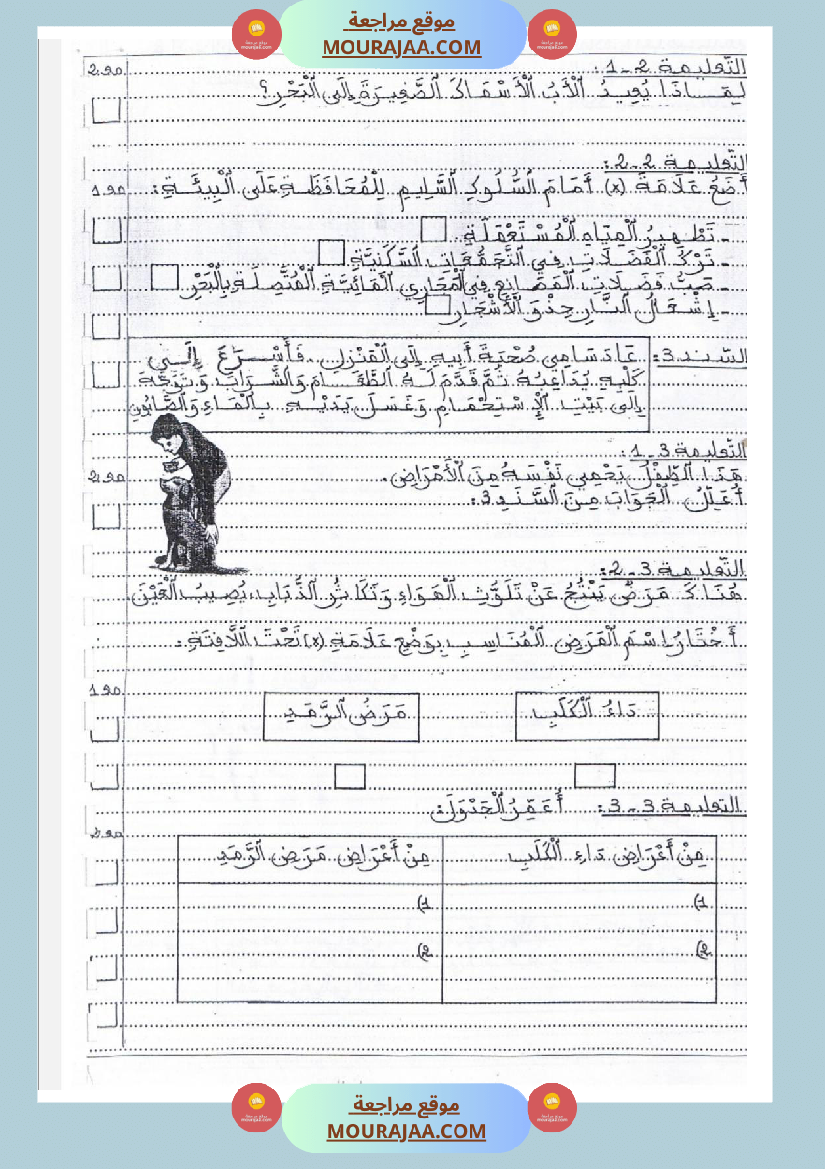 موقع مراجعة
MOURAJAA.COM
التّعليمة 2-1:
لِمَاذَا يُعِيدُ الْأَبُ الْأَسْمَاكَ الصَّغِيرَةَ إِلَى الْبَحْرِ؟
التّعليمة 2-2:
أَضَعُ عَلَامَةَ (x) أَمَامَ السُّلُوكِ السَّلِيمِ لِلْمُحَافَظَةِ عَلَى الْبِيئَةِ:
- تَطْهِيرُ الْمِيَاهِ الْمُسْتَعْمَلَةِ
- تَرْكُ الْفَضَلَاتِ فِي التَّجَمُّعَاتِ السَّكَنِيَّةِ
- صَبُّ فَضَلَاتِ الْمَصَانِعِ فِي الْمَجَارِي الْمَائِيَّةِ الْمُتَّصِلَةِ بِالْبَحْرِ
- إِشْعَالُ النَّارِ حِذْوَ الْأَشْجَارِ
السّند 3: عَادَ سَامِي صُحْبَةَ أَبِيهِ إِلَى الْمَنْزِلِ. فَأَسْرَعَ إِلَى
كَلْبِهِ يُدَاعِبُهُ ثُمَّ قَدَّمَ لَهُ الطَّعَامَ وَالشَّرَابَ وَتَوَجَّهَ
إِلَى بَيْتِ الْإِسْتِحْمَامِ وَغَسَلَ يَدَيْهِ بِالْمَاءِ وَالصَّابُونِ
التّعليمة 3-1:
هَذَا الطِّفْلُ يَحْمِي نَفْسَهُ مِنَ الْأَمْرَاضِ.
أُعَلِّلُ الْجَوَابَ مِنَ السَّنَدِ 3:
التّعليمة 3-2:
هُنَاكَ مَرَضٌ يَنْتُجُ عَنْ تَلَوُّثِ الْهَوَاءِ وَتَكَاثُرِ الذُّبَابِ، يُصِيبُ الْعَيْنَ
أَخْتَارُ اِسْمَ الْمَرَضِ الْمُنَاسِبِ بِوَضْعِ عَلَامَةِ (x) تَحْتَ اللَّافِتَةِ:
دَاءُ الْكَلَبِ مَرَضُ الرَّمَدِ
التعليمة 3-3: أُعَمِّرُ الْجَدْوَلَ:
مِنْ أَعْرَاضِ دَاءِ الْكَلَبِ مِنْ أَعْرَاضِ مَرَضِ الرَّمَدِ
1) 1)
2) 2)
موقع مراجعة
MOURAJAA.COM